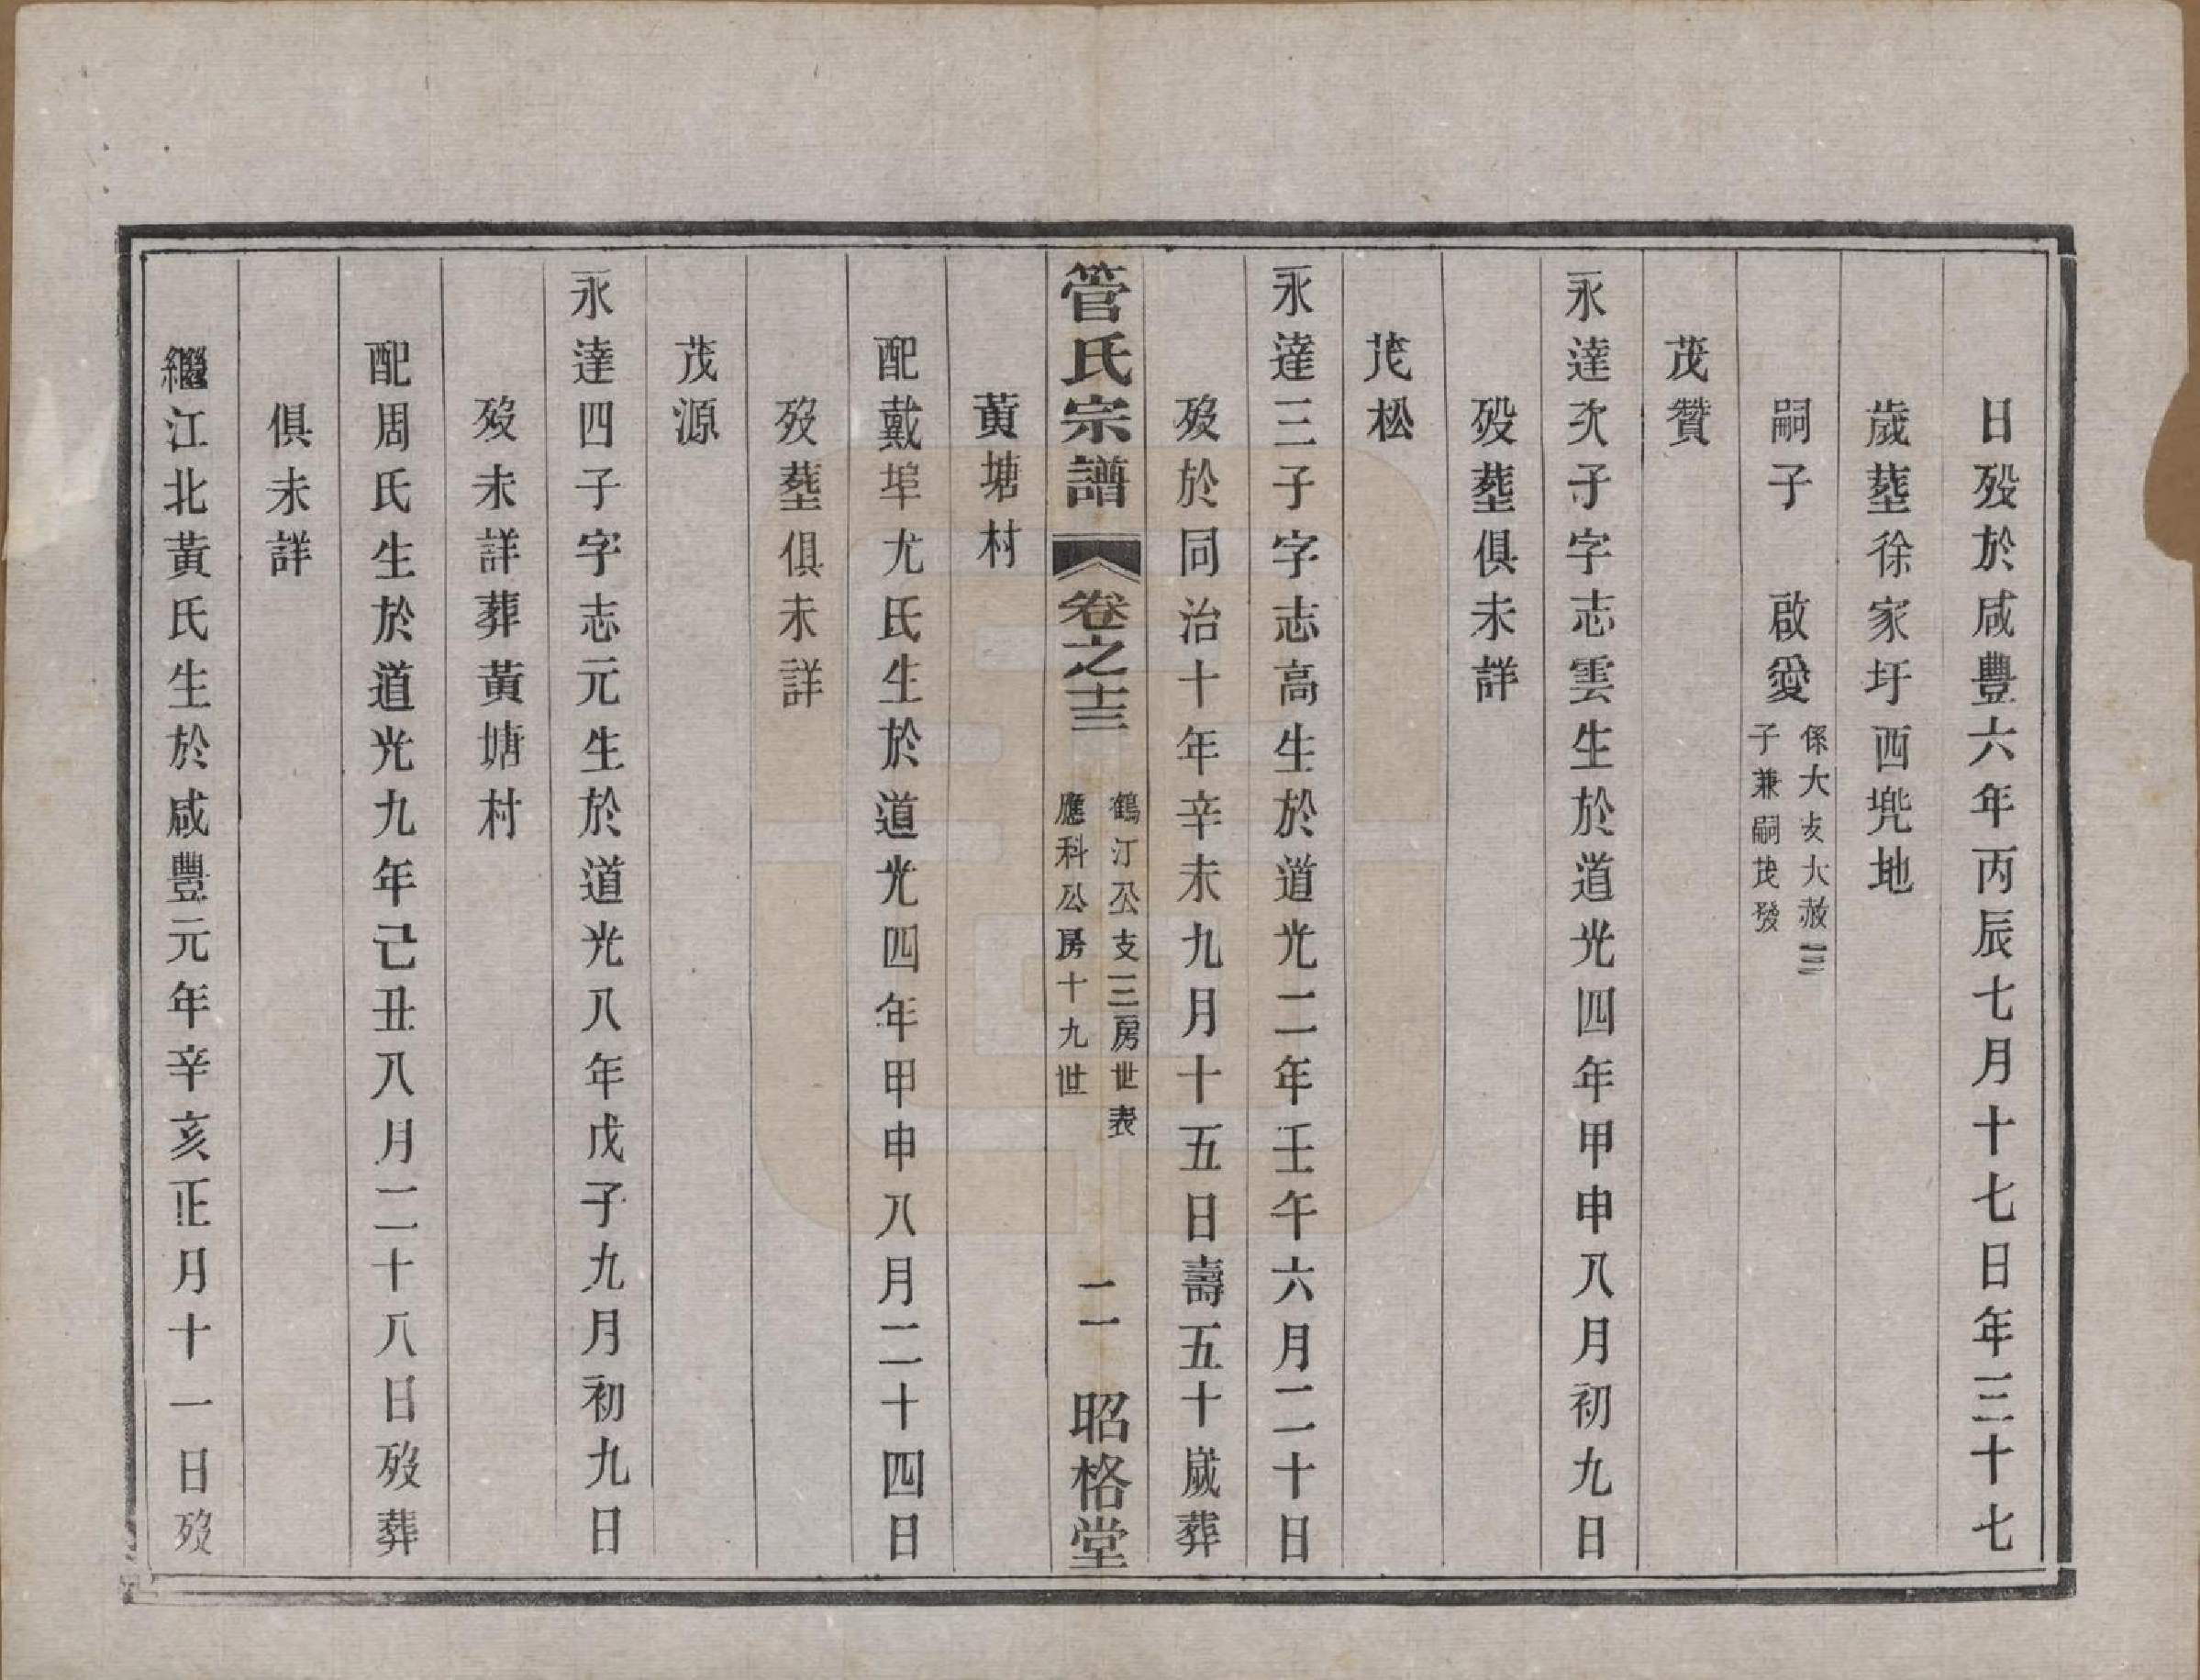 日歿於咸豐六年丙辰七月十七日年三十七
歲葬徐家圩西兠地
嗣子　啟愛
係大支大赦三
子兼嗣茂發
茂贊
永達次子字志雲生於道光四年甲申八月初九日
歿葬俱未詳
茂松
永達三子字志高生於道光二年壬午六月二十日
歿於同治十年辛未九月十五日壽五十歲葬
管氏宗譜　卷之十三
鶴汀公支三房世表
應科公房十九世
二　昭格堂
黄塘村
配戴埠尤氏生於道光四年甲申八月二十四日
歿葬俱未詳
茂源
永達四子字志元生於道光八年戊子九月初九日
歿未詳葬黃塘村
配周氏生於道光九年己丑八月二十八日歿葬
俱未詳
繼江北黃氏生於咸豐元年辛亥正月十一日歿